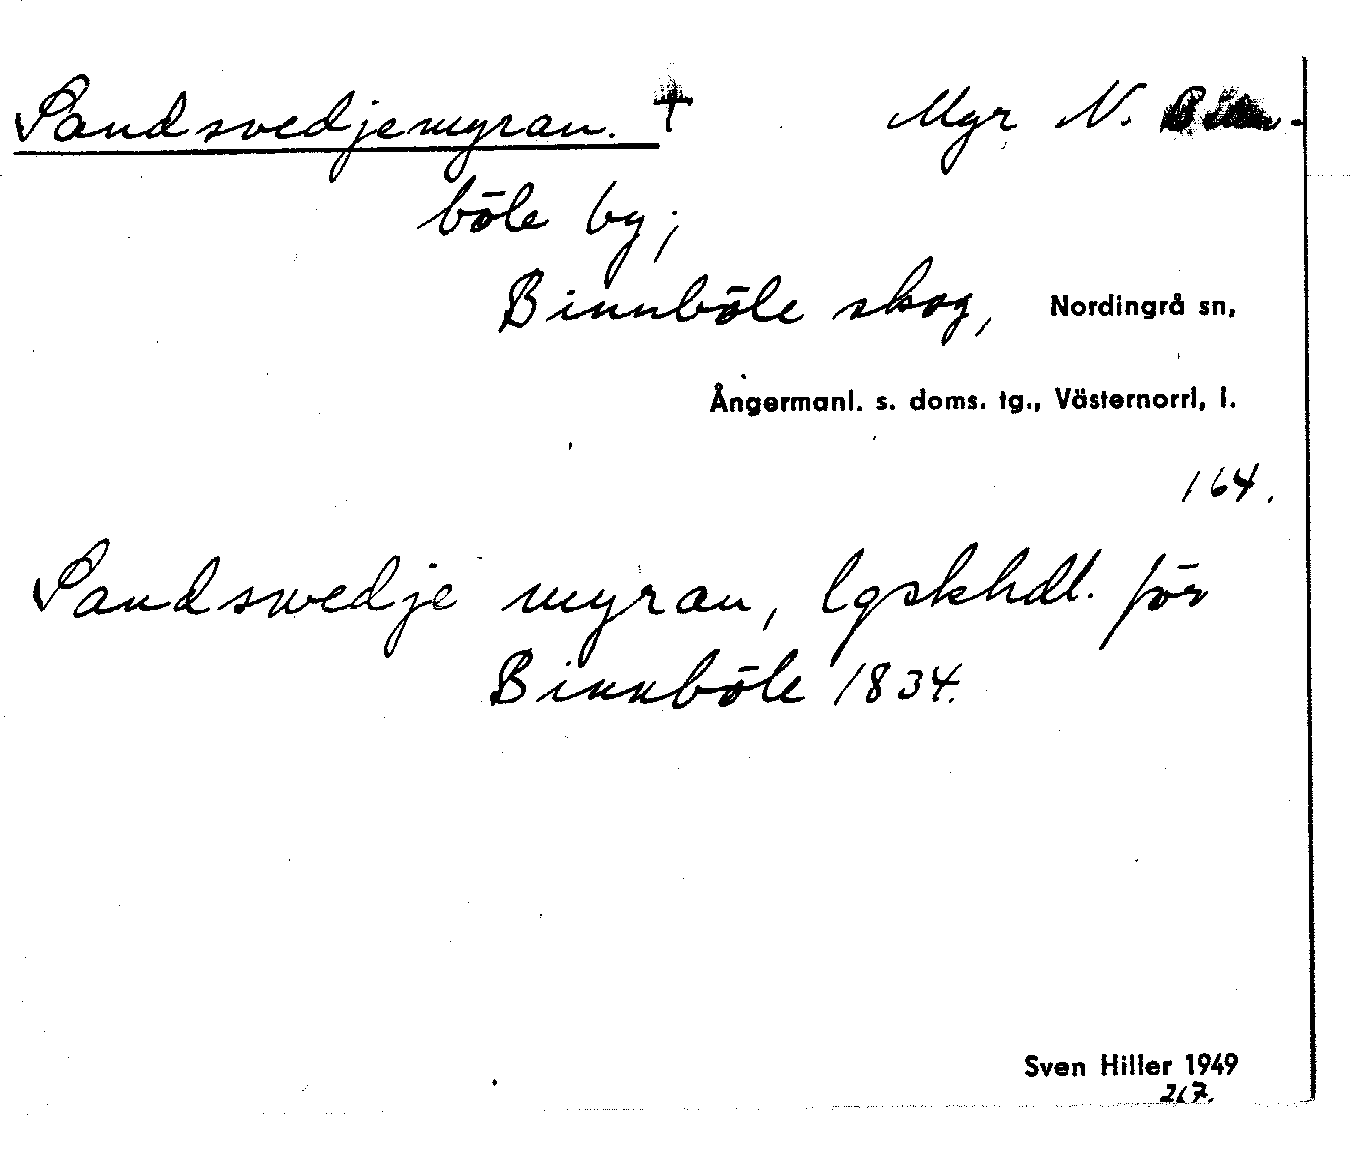 Sandsvedjemyran. + Myr N. Binn-
böle by;
Binnböle skog, Nordingrå sn,
Ångermanl. s. doms. tg., Västernorrl. l.
164.
Sandswedje myran, lgskhdl. för
Binnböle 1834.
Sven Hiller 1949
267.